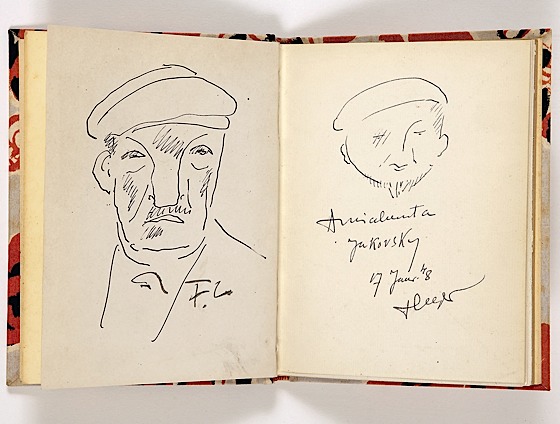 F.L
Amicalement a
Jakovsky
17 Janv. 48
FLeger